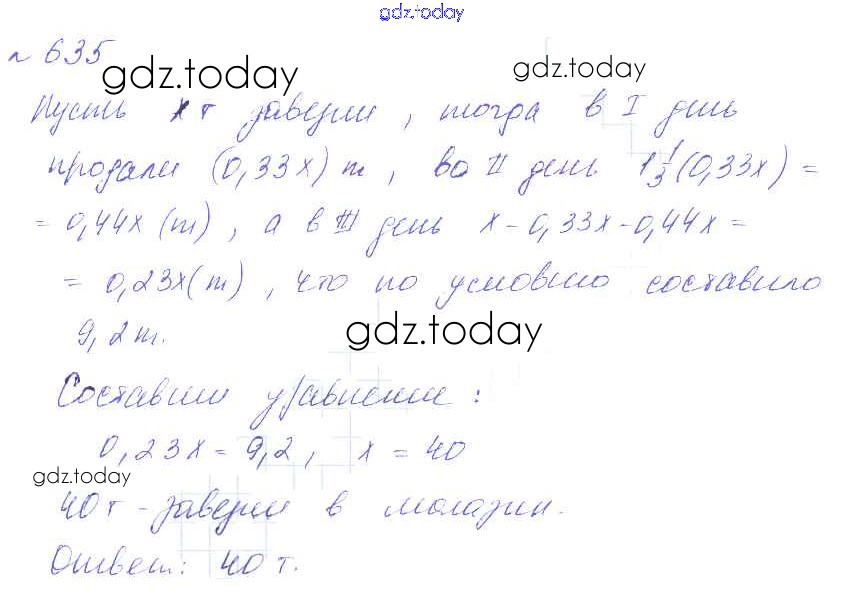 gdz.today
№ 635
gdz.today
gdz.today
Пусть x т завезли, тогда в I день
продали (0,33x) т, во II день 1 1/3 (0,33x) =
= 0,44x (т), а в III день x - 0,33x - 0,44x =
= 0,23x (т), что по условию составило
9,2 т.
gdz.today
Составим уравнение:
0,23x = 9,2, x = 40
gdz.today
40 т - завезли в магазин.
Ответ: 40 т.